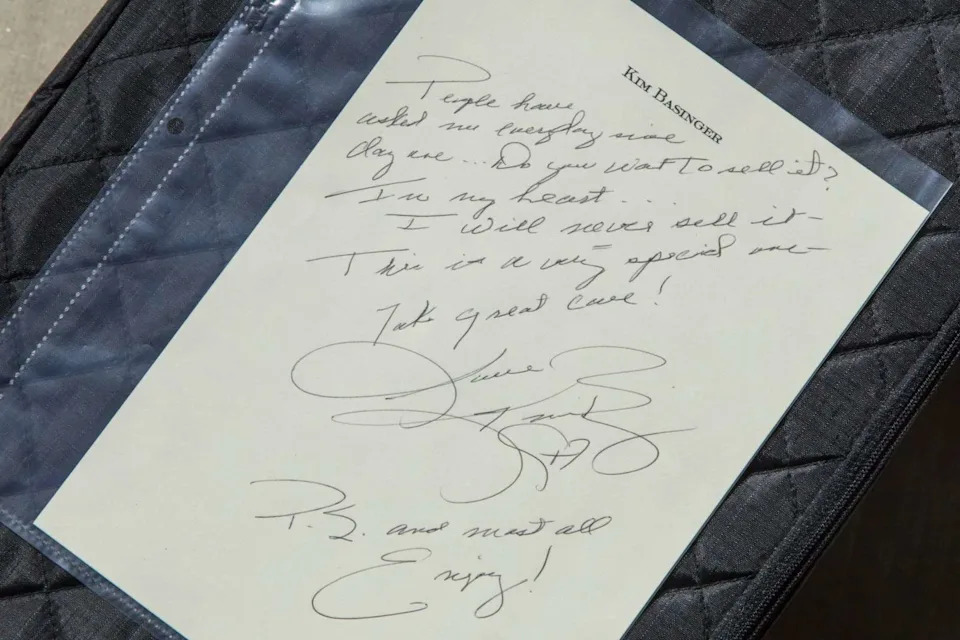 KIM BASINGER
People have
asked me everyday since
day one... Do you want to sell it?
In my heart...
I will never sell it -
This is a very special one -
Take great care!
Love
Kim B
P.S. and most all
Enjoy!